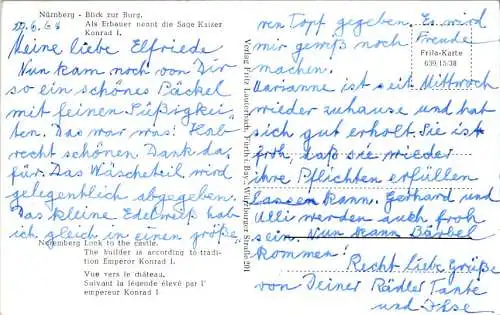 Nürnberg - Blick zur Burg.
Als Erbauer nennt die Sage Kaiser
Konrad I.
Meine liebe Elfriede
Nun kam noch von Dir
so ein schönes Päckel
mit feinen Süßigkei-
ten. Das war was! Hab
recht schönen Dank da-
für. Das Wäscheteil wird
gelegentlich abgegeben.
Das kleine Edelweiß hab
ich gleich in einen größe-
Nuremberg Look to the castle.
The builder is according to tradi-
tion Emperor Konrad I.
Vue vers le château.
Suivant la légende élevé par l'
empereur Konrad I.
Verlag Fritz Lauterbach, Fürth i. Bay., Würzburger Straße
ren Topf gegeben. Es wird
mir gewiß noch Freude
machen.
Frila-Karte
639/15/38
Marianne ist seit Mittwoch
wieder zuhause und hat
sich gut erholt. Sie ist
froh, daß sie wieder
ihre Pflichten erfüllen
lassen kann. Gerhard und
Ulli werden auch froh
sein. Nun kann Bärbel
kommen!
Recht liebe Grüße
von Deiner Rädler Tante
und Ilse